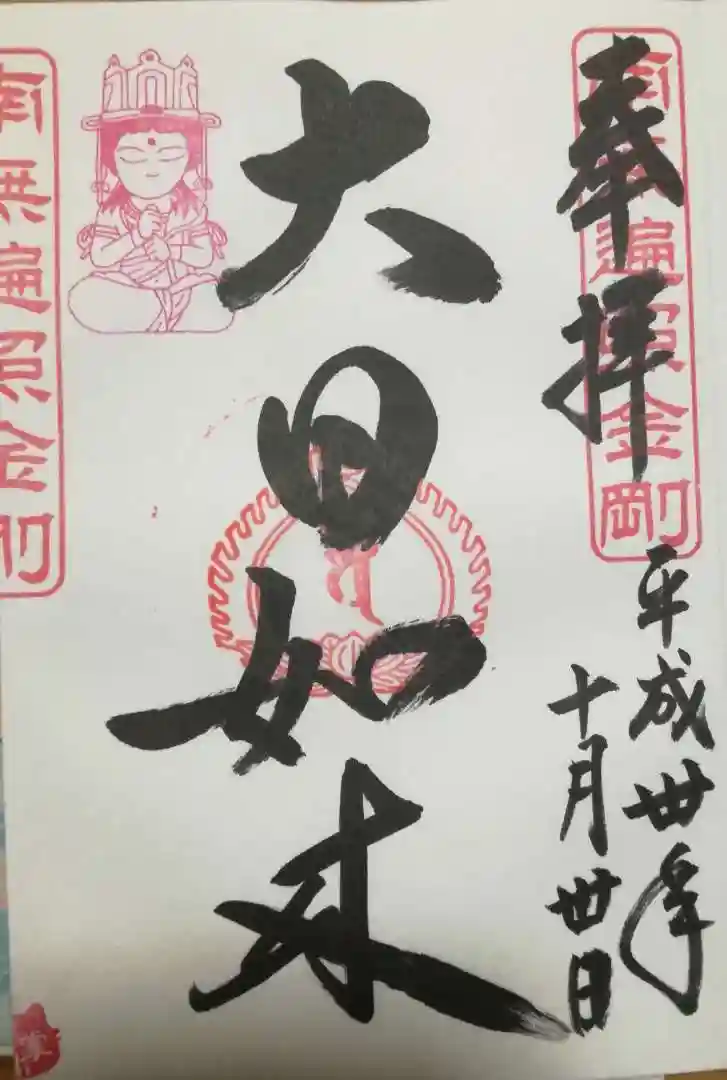 奉拝
平成丗年
十月丗日
南無遍照金剛
大日如来
南無遍照金剛